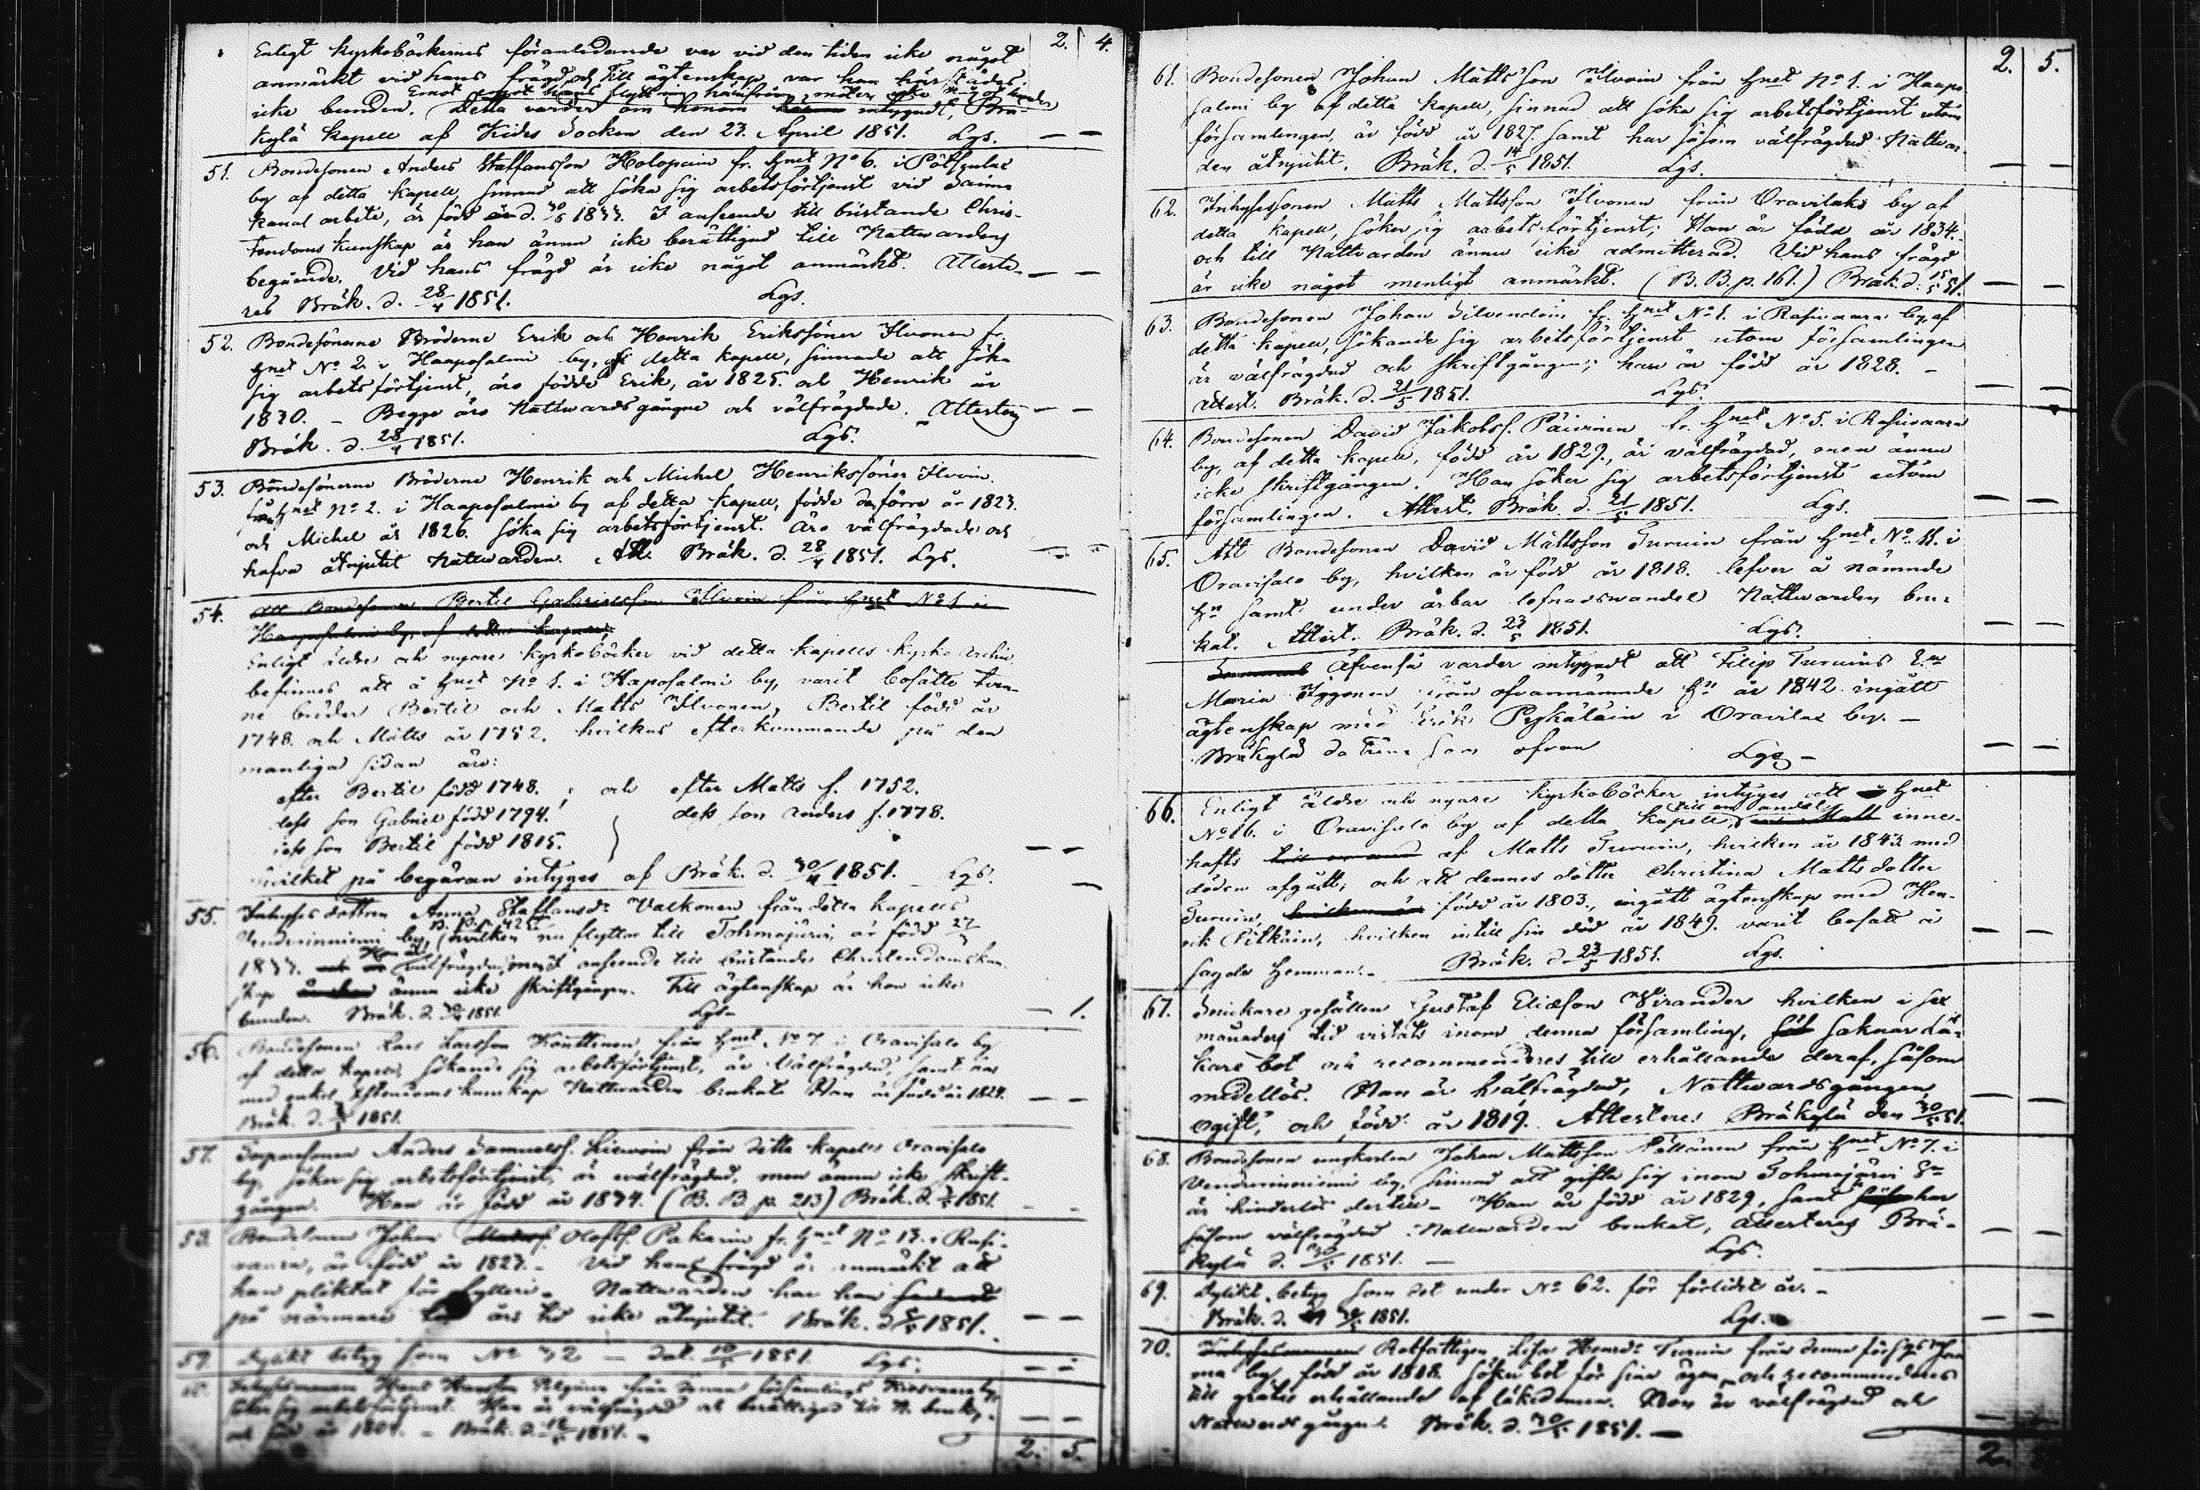 Enligt kyrkobäckernes föranledande var vid den tiden icke något 2. 4.
anmärkt vid hans frägd och till ägtenskap var han härstädes
icke bunden. Detta varder om honom intygadt, Brä-
kylä kapell af Kides Socken den 23. April 1851. Lgs. — —
51. Bondesonen Anders Staffansson Holopain fr. Hnet No 6. i
by af detta kapell, sinnad att söka sig arbetsförtjenst vid Saima
kanal arbete, är född d. 30/6 1833. I anseende till bristande Chris-
tendoms kunskap är han ännu icke berättigad till Nattvardens
begående. Vid hans frägd är icke något anmärkt. Atteste- — —
ras Bräk. d. 28/4 1851. Lgs.
52. Bondesönerne Bröderne Erik och Henrik Erikssöner Ilvonen fr.
Hnet No 2 i Haaposalmi by, af detta kapell, sinnade att söka
sig arbetsförtjenst, äro födde Erik, år 1825. och Henrik år
1830. – Begge äro Nattvardsgångne och välfrägdade. Attesteras — —
Bräk. d. 28/4 1851. Lgs.
53. Bondesönerne Bröderne Henrik och Michel Henrikssöner Ilvoin
från Hnet No 2. i Haaposalmi by af detta kapell, födde den förre år 1823.
och Michel år 1826. söka sig arbetsförtjenst. Äro välfrägdade och
hafva åtnjutit Nattvarden. Att. Bräk. d. 28/4 1851. Lgs. — —
54. Att Bondesonen Bertil Gabrielsson Ilvoin från Hnet No 1 i
Haaposalmi by, af detta kapell,
Enligt äldre och nyare kyrkoböcker vid detta kapells kyrko Archiv
befinnes att å Hnet No 1. i Haposalmi by, varit bosatte tven-
ne bröder Bertil och Matts Ilvonen, Bertil född år
1748. och Matts år 1752. hvilkas efterkommande på den
manliga sidan äro:
efter Bertil född 1748. ; och efter Matts f. 1752.
dess son Gabriel född 1794. dess son Anders f. 1778.
dess son Bertil född 1815. — —
hvilket på begäran intyges af Bräk. d. 30/4 1851. Lgs. —
55. Inhyses dottren Anna Staffansdr Valkonen från detta kapells
by, (hvilken nu flyttar till Tohmajärvi, är född 27/
1833. Hon är välfrägdad, med anseende till bristande Christendomskun-
skap ännu icke skriftgången. Till ägtenskap är hon icke
bunden. Bräk. d. 1851. Lgs. — 1.
56. Bondesonen Lars Larsson från Hnet No 7 i Oravisalo by
af detta kapell, sökande sig arbetsförtjenst, är välfrägdad, samt har
med enkel Christendoms kunskap Nattvarden brukat. Han är född år 1829. — —
Bräk. d. 1851.
57. Torparesonen Anders Samuelss. från detta kapells Oravisalo
by, söker sig arbetsförtjenst, är välfrägdad, men ännu icke skrift-
gången. Han är född år 1834. (B. B. p. 213) Bräk. d. 1851. — —
58. Bondesonen Johan Olofss. Pakarin fr. Hnet No 13. i Rasi-
vaara, är född år 1823. – Vid hans frägd är anmärkt att
han pliktat för fylleri. Nattvarden har han
på närmare års tid icke åtnjutit. Bräk. d. 1851. — —
59. Dylikt betyg som No 32 — Dat. 10/5 1851. Lgs. — —
60. Inhysesmannen från denna församlings
söker sig arbetsförtjenst. Han är välfrägdad och berättigad till N. bruk,
och född år 1804. – Bräk. d. 12/5 1851. – — —
2. 5.
2. 5.
61. Bondesonen Johan Mattsson Ilvoin från Hnet No 1. i Haapo-
salmi by af detta kapell, sinnad att söka sig arbetsförtjenst utom
församlingen, är född år 1827. samt har såsom välfrägdad Nattvar-
den åtnjutit. Bräk. d. 14/5 1851. Lgs. — —
62. Inhysessonen Matts Mattsson Ilvonen från Oravilaks by af
detta kapell, söker sig arbetsförtjenst; Han är född år 1834.
och till Nattvarden ännu icke admitterad. Vid hans frägd
är icke något menligt anmärkt. (B. B. p. 161.) Bräk. d. 15/5 51. — —
63. Bondesonen Johan Silvendoin fr. Hnet No 1. i Rasivaara by, af
detta kapell, sökande sig arbetsförtjenst utom församlingen
är välfrägdad och skriftgången; han är född år 1828. –
Attest. Bräk. d. 21/5 1851. Lgs. — —
64. Bondesonen David Jakobss. Päivinen fr. Hnet No 5. i Rasivaara
by, af detta kapell, född år 1829., är välfrägdad, men ännu
icke skriftgången. Han söker sig arbetsförtjenst utom
församlingen. Attest. Bräk. d. 21/5 1851. Lgs. — —
65. Att Bondesonen David Mattsson Turuin från Hnet No 11. i
Oravisalo by, hvilken är född år 1818. lefver å nämnde
Hn samt under ärbar lefnadswandel Nattvarden bru-
kat. Attest. Bräk. d. 23/5 1851. Lgs. — —
Äfvenså varder intygadt att Filip Turuins
Maria från ofvannämnde Hn år 1842 ingått
ägtenskap med Erik i Oravilax by. –
Bräkylä datum som ofvan Lgs – — —
66. Enligt äldre och nyare kyrkoböcker intyges att Hnet
No 16. i Oravisalo by af detta kapell, till en andel inne-
hafts af Matts Turuin, hvilken år 1843 med
döden afgått; och att dennes dotter Christina Mattsdotter
Turuin, född år 1803., ingått ägtenskap med Hen-
rik Pitkäin, hvilken intill sin död år 1849. varit bosatt å — —
sagde Hemman. – Bräk. d. 23/5 1851. Lgs.
67. Snickare gesällen Gustaf Eliæson Wirander hvilken i sex
månaders tid vistats inom denna församling, saknar Lä-
kare bot och recommenderes till erhållande deraf, såsom
medellös. Han är välfrägdad, Nattwardsgången — —
ogift, och född år 1819. Attesteres Bräkylä den 30/5 51.
68. Bondesonen ungkarlen Johan Mattsson från Hnet No 7. i
by, sinnad att gifta sig inom Tohmajärvi Sn
är hinderlös dertill. – Han är född år 1829, samt har
såsom välfrägdad Nattwarden brukat, attesteras Brä- — —
kylä d. 30/5 1851. — Lgs.
69. Dylikt betyg som det under No 62. för förlidet år. –
Bräk. d. 30/5 1851. Lgs. — —
70. Rotfattigen Lisa Henrdr Turuin från denna förs:gs
by, född år 1818. söker bot för sina ögon, och recommenderes
till gratis erhållandet af läkedomen. Hon är välfrägdad och
Nattwardsgången. Bräk. d. 30/5 1851. — —
2.